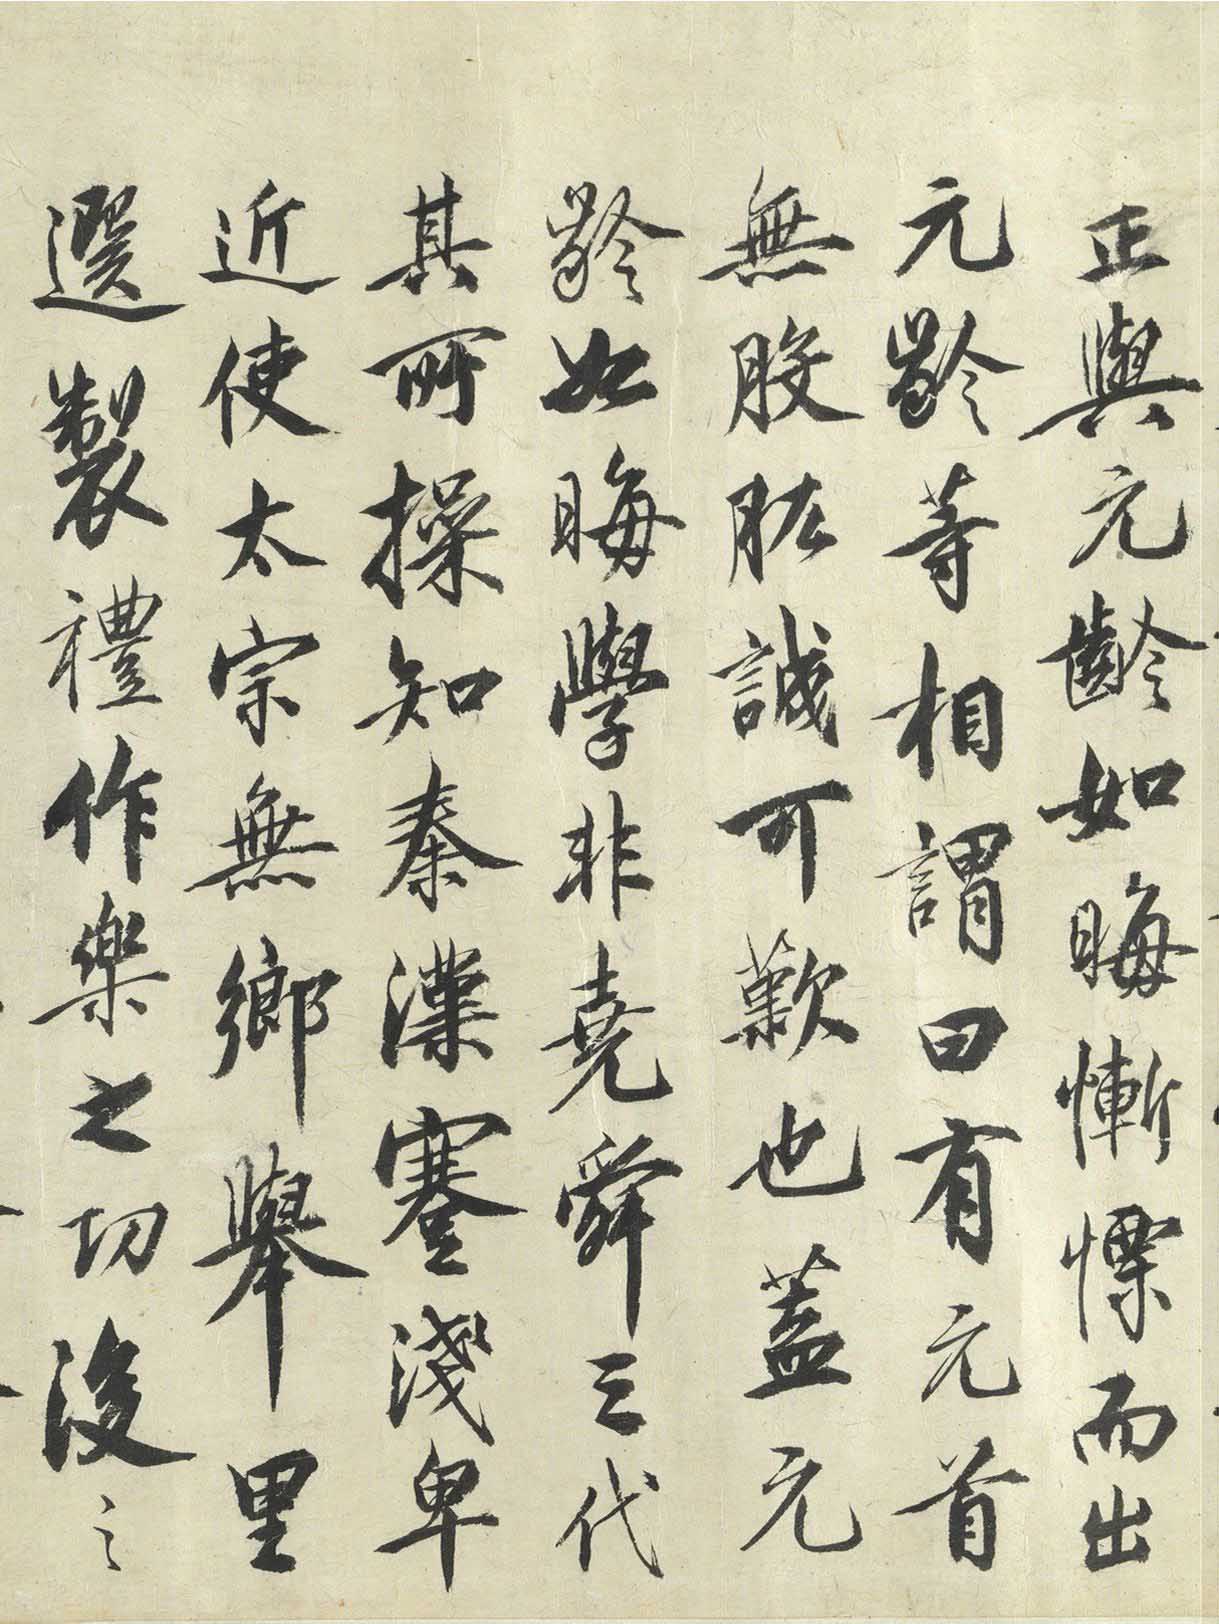 正與元齡如晦慚慄而出
元齡等相謂曰有元首
無股肱誠可歎也蓋元
齡如晦學非堯舜三代
其所操知秦漢蹇淺卑
近使太宗無鄉舉里
選製禮作樂之切後之